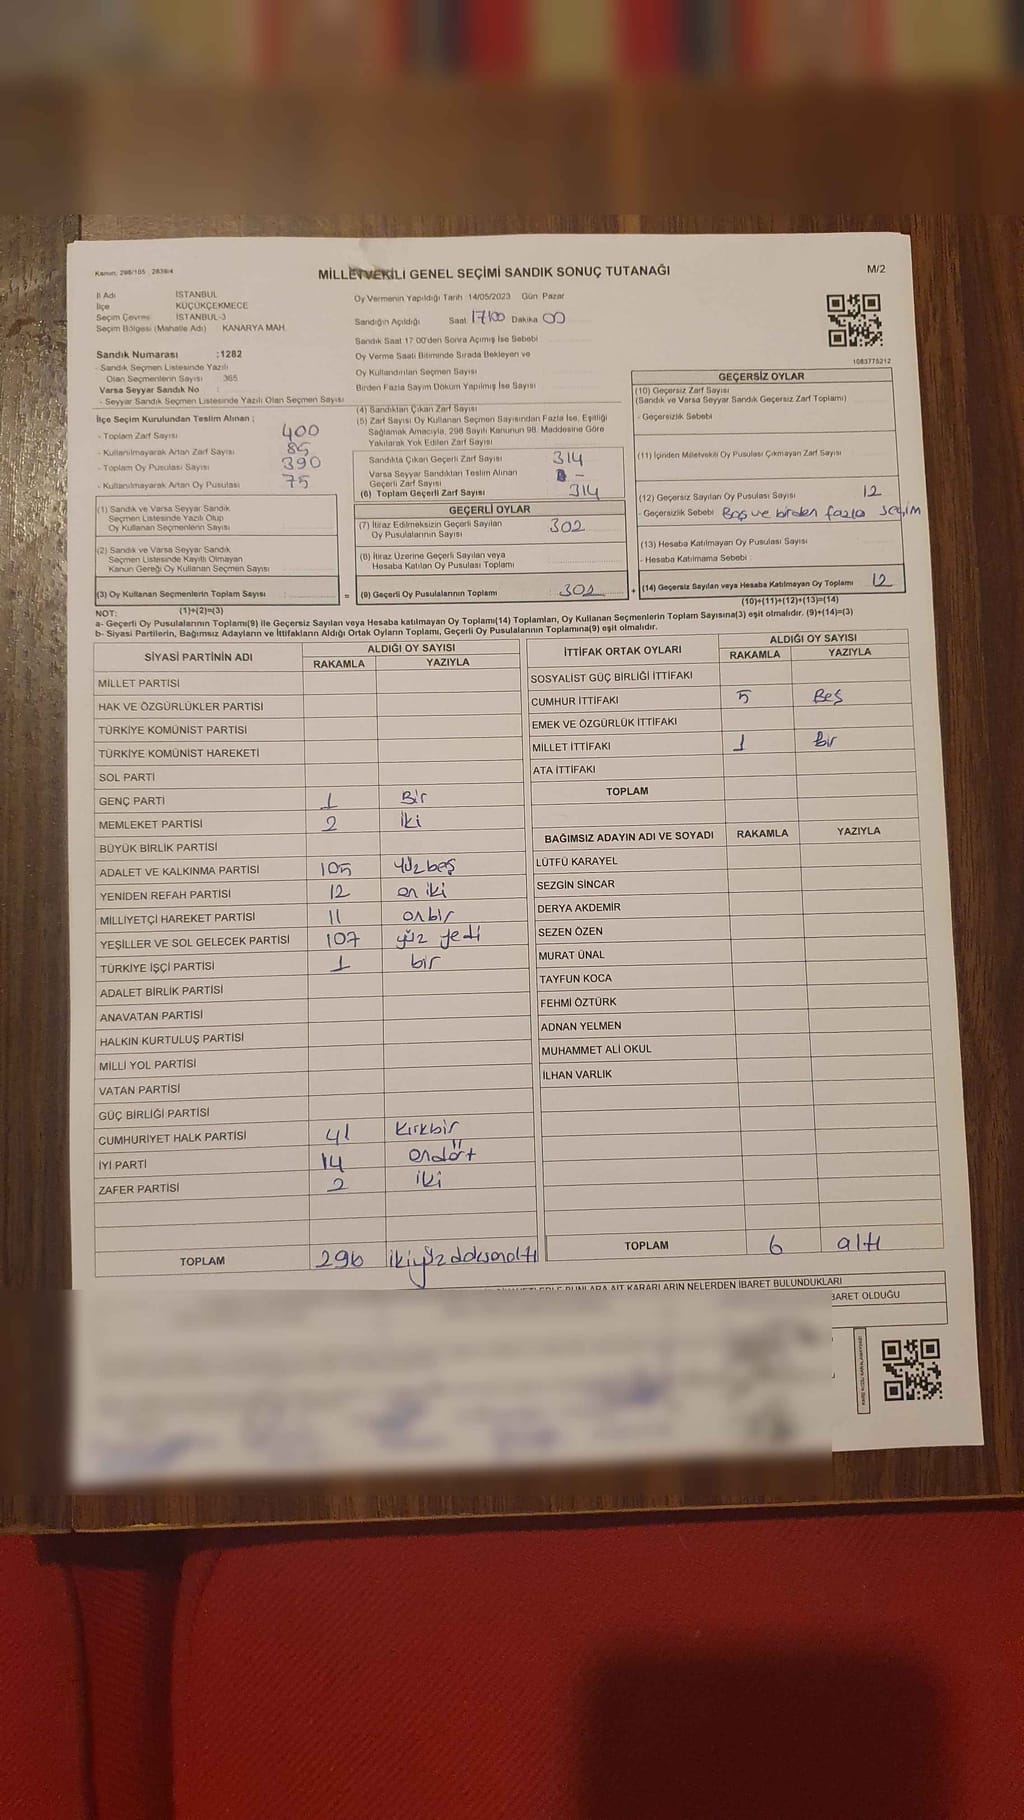 Kanun: 298/105 , 2839/4
MİLLETVEKİLİ GENEL SEÇİMİ SANDIK SONUÇ TUTANAĞI
M/2
İl Adı İSTANBUL
İlçe KÜÇÜKÇEKMECE
Seçim Çevresi İSTANBUL-3
Seçim Bölgesi (Mahalle Adı) KANARYA MAH.
Oy Vermenin Yapıldığı Tarih 14/05/2023 Gün Pazar
Sandığın Açıldığı Saat 17:00 Dakika 00
Sandık Saat 17.00'den Sonra Açımış İse Sebebi
Oy Verme Saati Bitiminde Sırada Bekleyen ve
Oy Kullandırılan Seçmen Sayısı
Birden Fazla Sayım Döküm Yapılmış İse Sayısı
1083775212
Sandık Numarası :1282
- Sandık Seçmen Listesinde Yazılı
Olan Seçmenlerin Sayısı 365
Varsa Seyyar Sandık No :
- Seyyar Sandık Seçmen Listesinde Yazılı Olan Seçmen Sayısı
İlçe Seçim Kurulundan Teslim Alınan ;
- Toplam Zarf Sayısı 400
- Kullanılmayarak Artan Zarf Sayısı 85
- Toplam Oy Pusulası Sayısı 390
- Kullanılmayarak Artan Oy Pusulası 75
(1) Sandık ve Varsa Seyyar Sandık
Seçmen Listesinde Yazılı Olup
Oy Kullanan Seçmenlerin Sayısı
(2) Sandık ve Varsa Seyyar Sandık
Seçmen Listesinde Kayıtlı Olmayan
Kanun Gereği Oy Kullanan Seçmen Sayısı
(3) Oy Kullanan Seçmenlerin Toplam Sayısı :
(1)+(2)=(3)
(4) Sandıktan Çıkan Zarf Sayısı
(5) Zarf Sayısı Oy Kullanan Seçmen Sayısından Fazla İse, Eşitliği
Sağlamak Amacıyla, 298 Sayılı Kanunun 98. Maddesine Göre
Yakılarak Yok Edilen Zarf Sayısı
Sandıkta Çıkan Geçerli Zarf Sayısı 314
Varsa Seyyar Sandıktan Teslim Alınan
Geçerli Zarf Sayısı -
(6) Toplam Geçerli Zarf Sayısı 314
GEÇERLİ OYLAR
(7) İtiraz Edilmeksizin Geçerli Sayılan
Oy Pusulalarının Sayısı 302
(8) İtiraz Üzerine Geçerli Sayılan veya
Hesaba Katılan Oy Pusulası Toplamı
= (9) Geçerli Oy Pusulalarının Toplamı : 302 +
GEÇERSİZ OYLAR
(10) Geçersiz Zarf Sayısı
(Sandık ve Varsa Seyyar Sandık Geçersiz Zarf Toplamı)
- Geçersizlik Sebebi
(11) İçinden Milletvekili Oy Pusulası Çıkmayan Zarf Sayısı
(12) Geçersiz Sayılan Oy Pusulası Sayısı 12
- Geçersizlik Sebebi Boş ve birden fazla seçim
(13) Hesaba Katılmayan Oy Pusulası Sayısı
- Hesaba Katılmama Sebebi :
(14) Geçersiz Sayılan veya Hesaba Katılmayan Oy Toplamı 12
(10)+(11)+(12)+(13)=(14)
NOT:
a- Geçerli Oy Pusulalarının Toplamı(9) ile Geçersiz Sayılan veya Hesaba katılmayan Oy Toplamı(14) Toplamları, Oy Kullanan Seçmenlerin Toplam Sayısına(3) eşit olmalıdır. (9)+(14)=(3)
b- Siyasi Partilerin, Bağımsız Adayların ve İttifakların Aldığı Ortak Oyların Toplamı, Geçerli Oy Pusulalarının Toplamına(9) eşit olmalıdır.
SİYASİ PARTİNİN ADI
ALDIĞI OY SAYISI
RAKAMLA YAZIYLA
MİLLET PARTİSİ
HAK VE ÖZGÜRLÜKLER PARTİSİ
TÜRKİYE KOMÜNİST PARTİSİ
TÜRKİYE KOMÜNİST HAREKETİ
SOL PARTİ
GENÇ PARTİ 1 Bir
MEMLEKET PARTİSİ 2 iki
BÜYÜK BİRLİK PARTİSİ
ADALET VE KALKINMA PARTİSİ 105 yüzbeş
YENİDEN REFAH PARTİSİ 12 on iki
MİLLİYETÇİ HAREKET PARTİSİ 11 onbir
YEŞİLLER VE SOL GELECEK PARTİSİ 107 yüz yedi
TÜRKİYE İŞÇİ PARTİSİ 1 bir
ADALET BİRLİK PARTİSİ
ANAVATAN PARTİSİ
HALKIN KURTULUŞ PARTİSİ
MİLLİ YOL PARTİSİ
VATAN PARTİSİ
GÜÇ BİRLİĞİ PARTİSİ
CUMHURİYET HALK PARTİSİ 41 kırkbir
İYİ PARTİ 14 ondört
ZAFER PARTİSİ 2 iki
TOPLAM 296 ikiyüzdoksanaltı
İTTİFAK ORTAK OYLARI
ALDIĞI OY SAYISI
RAKAMLA YAZIYLA
SOSYALİST GÜÇ BİRLİĞİ İTTİFAKI
CUMHUR İTTİFAKI 5 Beş
EMEK VE ÖZGÜRLÜK İTTİFAKI
MİLLET İTTİFAKI 1 bir
ATA İTTİFAKI
TOPLAM
BAĞIMSIZ ADAYIN ADI VE SOYADI RAKAMLA YAZIYLA
LÜTFÜ KARAYEL
SEZGİN SİNCAR
DERYA AKDEMİR
SEZEN ÖZEN
MURAT ÜNAL
TAYFUN KOCA
FEHMİ ÖZTÜRK
ADNAN YELMEN
MUHAMMET ALİ OKUL
İLHAN VARLIK
TOPLAM 6 altı
BUNLARA AİT KARARLARIN NELERDEN İBARET BULUNDUKLARI
BARET OLDUĞU